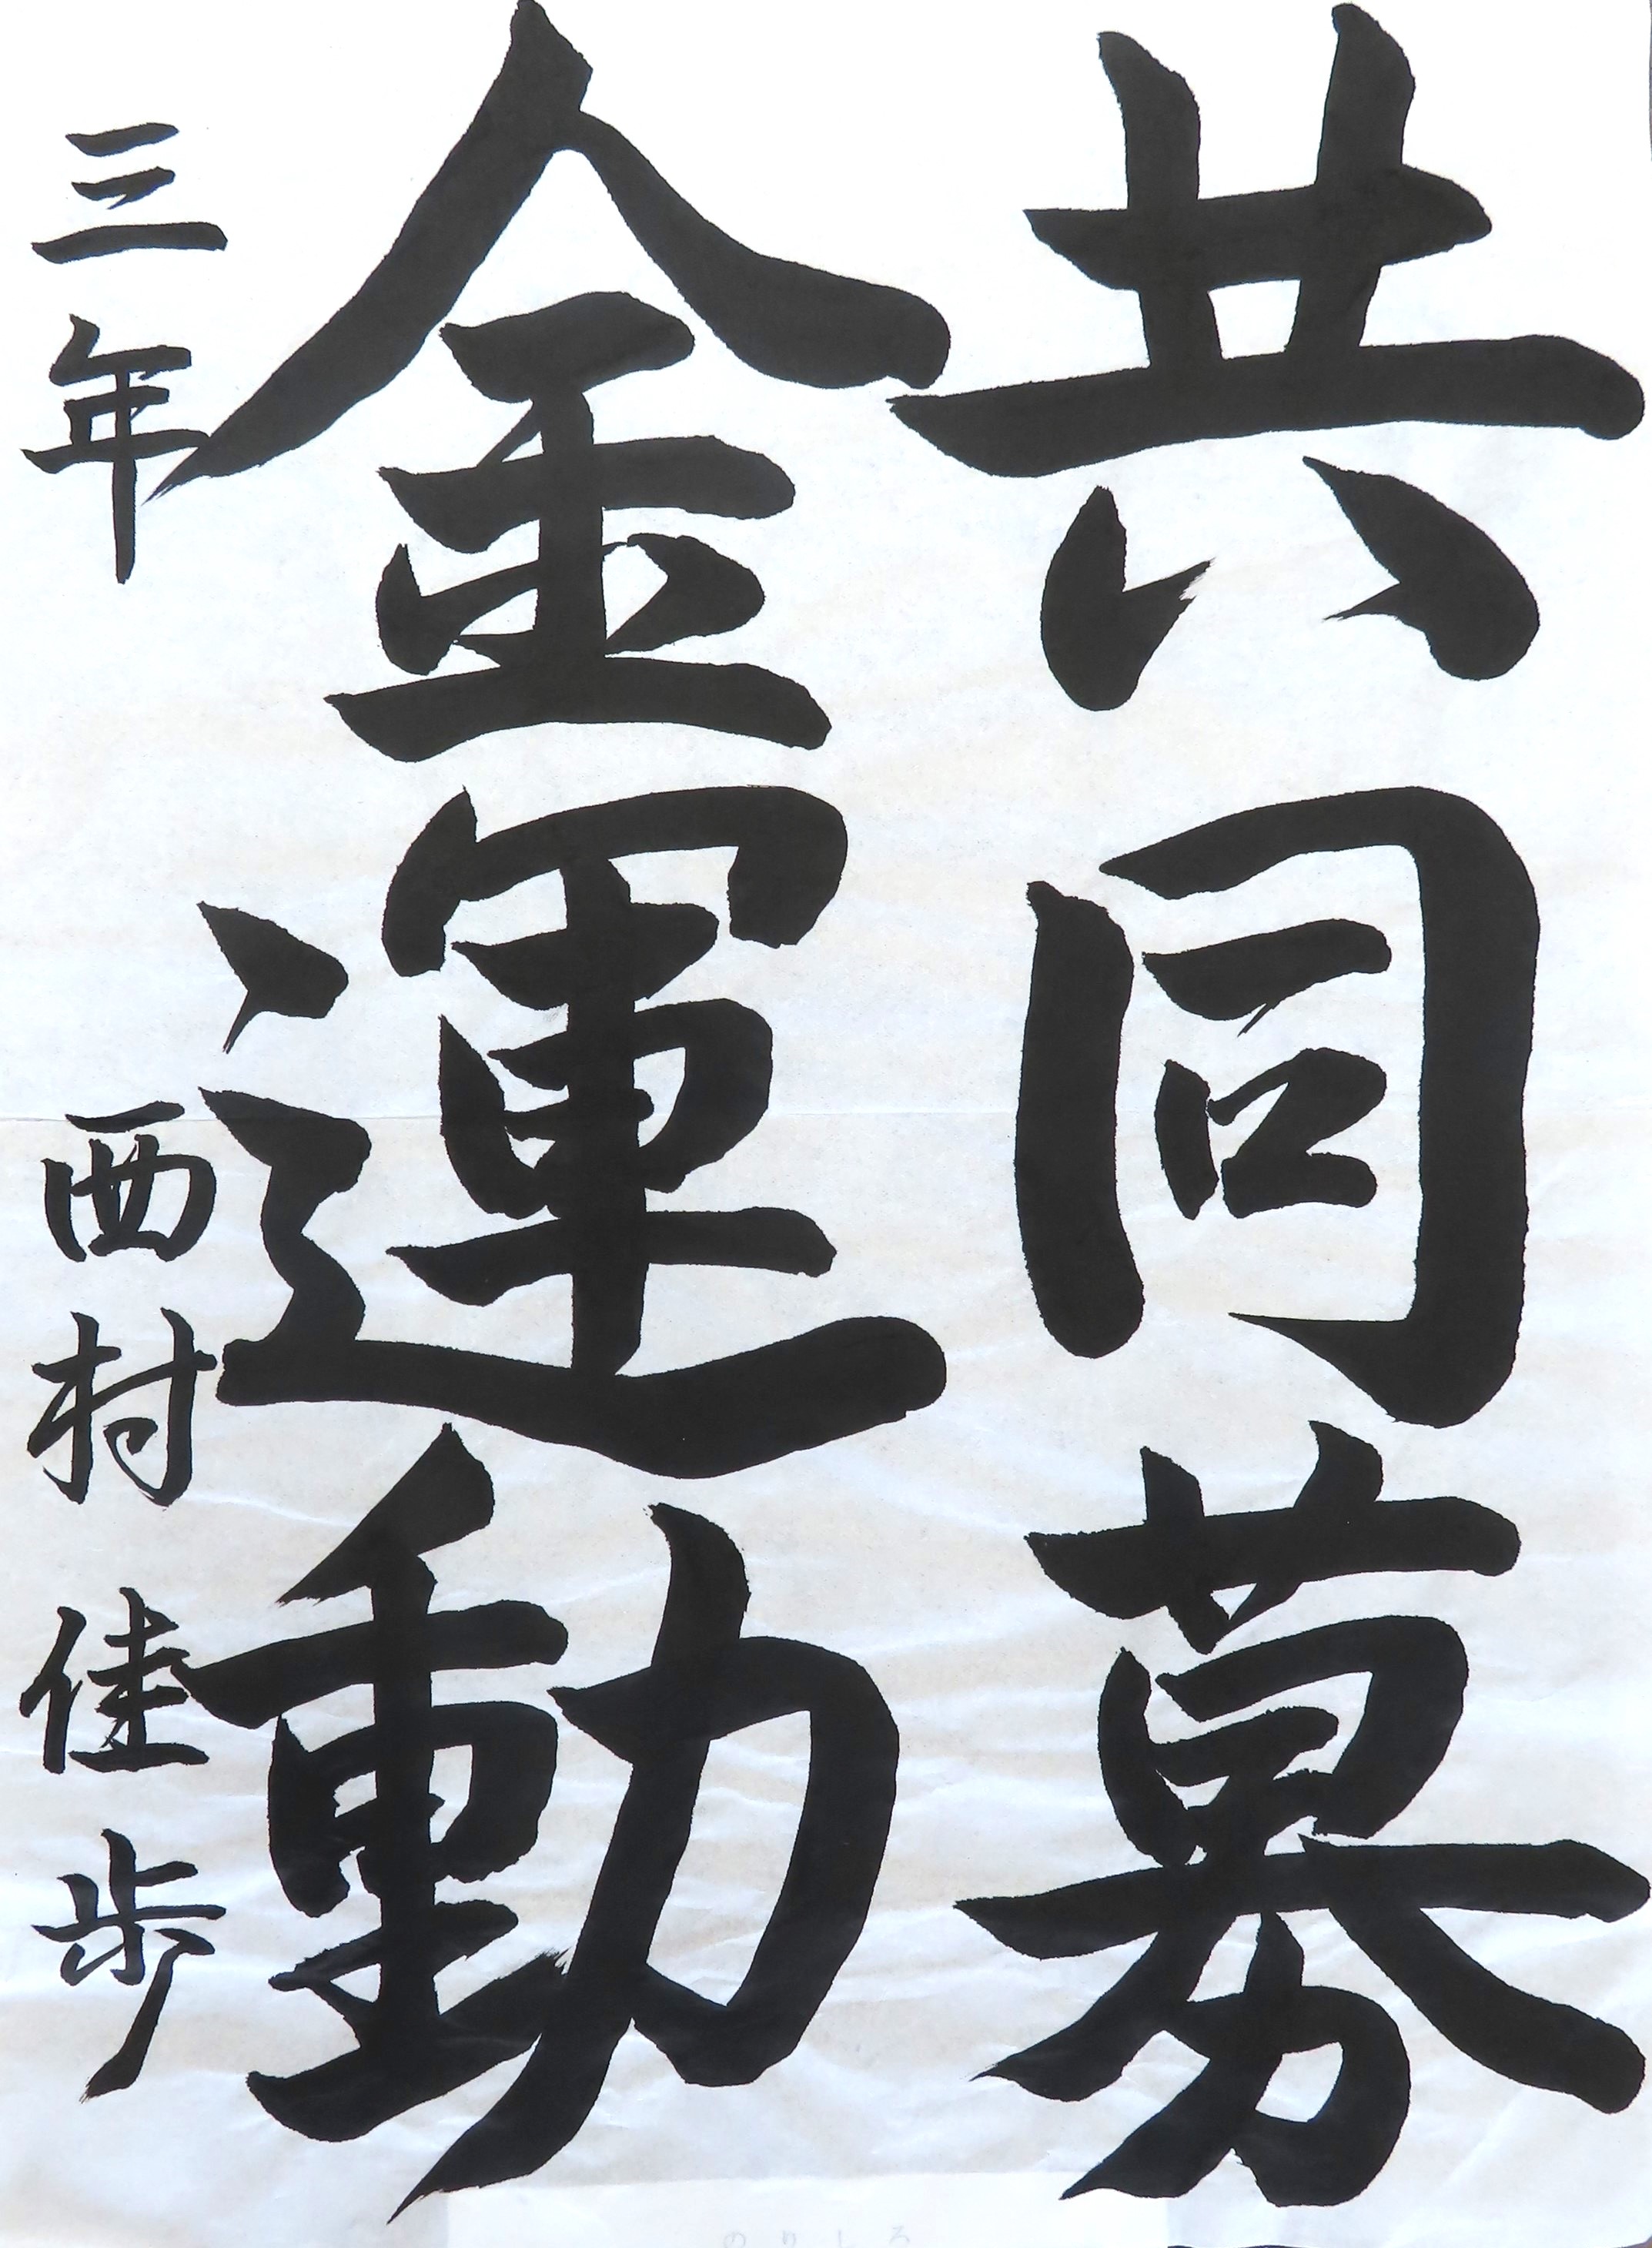 共同募
金運動
三年 西村佳歩
のりしろ